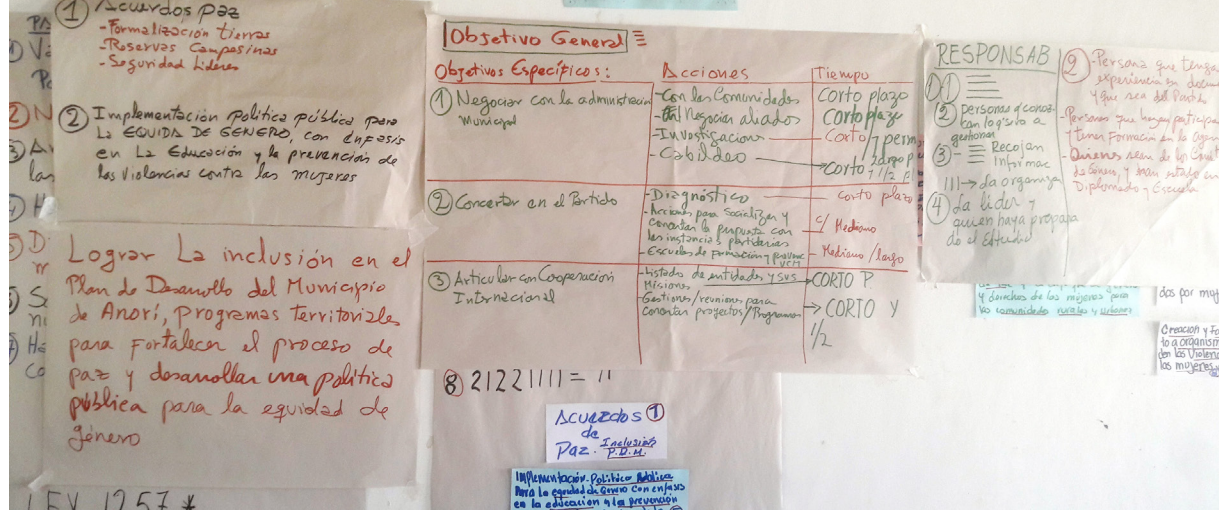 ① Acuerdos paz
- Formalización tierras
- Reservas Campesinas
- Seguridad Líderes
② Implementación política pública para
La EQUIDA DE GENERO, con énfasis
en La Educación y la prevención de
las violencias contra las mujeres
Lograr La inclusión en el
Plan de Desarrollo del Municipio
de Anorí, programas territoriales
para Fortalecer el proceso de
paz y desarrollar una política
pública para la equidad de
género
LEY 1257 *
Objetivo General
Objetivos Específicos:
Acciones
Tiempo
① Negociar con la administración
Municipal
- Con las Comunidades
- Negociar aliados
- Investigaciones
- Cabildeo
Corto plazo
Corto plazo
Corto / perm
Corto
② Concertar en el Partido
- Diagnóstico
- Acciones para socializar y
concertar la propuesta con
las instancias partidarias
- Escuelas de formación y
corto plazo
c/ Mediano
Mediano / largo
③ Articular con Cooperación
Internacional
- Listados de entidades y sus
Misiones
- Gestiones/reuniones para
concertar proyectos/Programas
CORTO P.
CORTO Y
1/2
8 21221111 = 11
Acuerdos ①
de
Paz. Inclusión
P.D.M.
Implementación Política Pública
Para la equidad de Género con enfasis
en la educación y la prevención
RESPONSAB
①
② personas q conoz
can logística
gestionar
③ - Recojan
Informac
III → La organiza
④ La líder y
quien haya prepara
do el Estudio
② - Persona que tenga
experiencia en docu
y que sea del Partido
- Personas que hayan participa
y tener formación en la agen
- Quienes sean de los Comit
de Género, y han estado en
Diplomado y Escuela
y derechos de las mujeres para
las comunidades rurales y urbanas
dos por muj
Creación y Fo
to a organism
den las Violenc
las mujeres